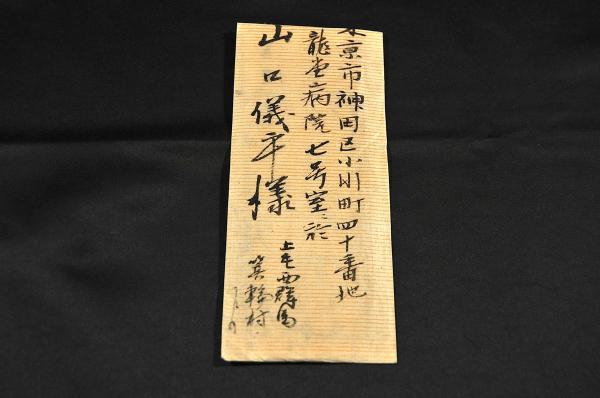 東京市神田区小川町四十番地
龍堂病院七号室ニ於
山口儀平様
上毛西群馬
箕輪村